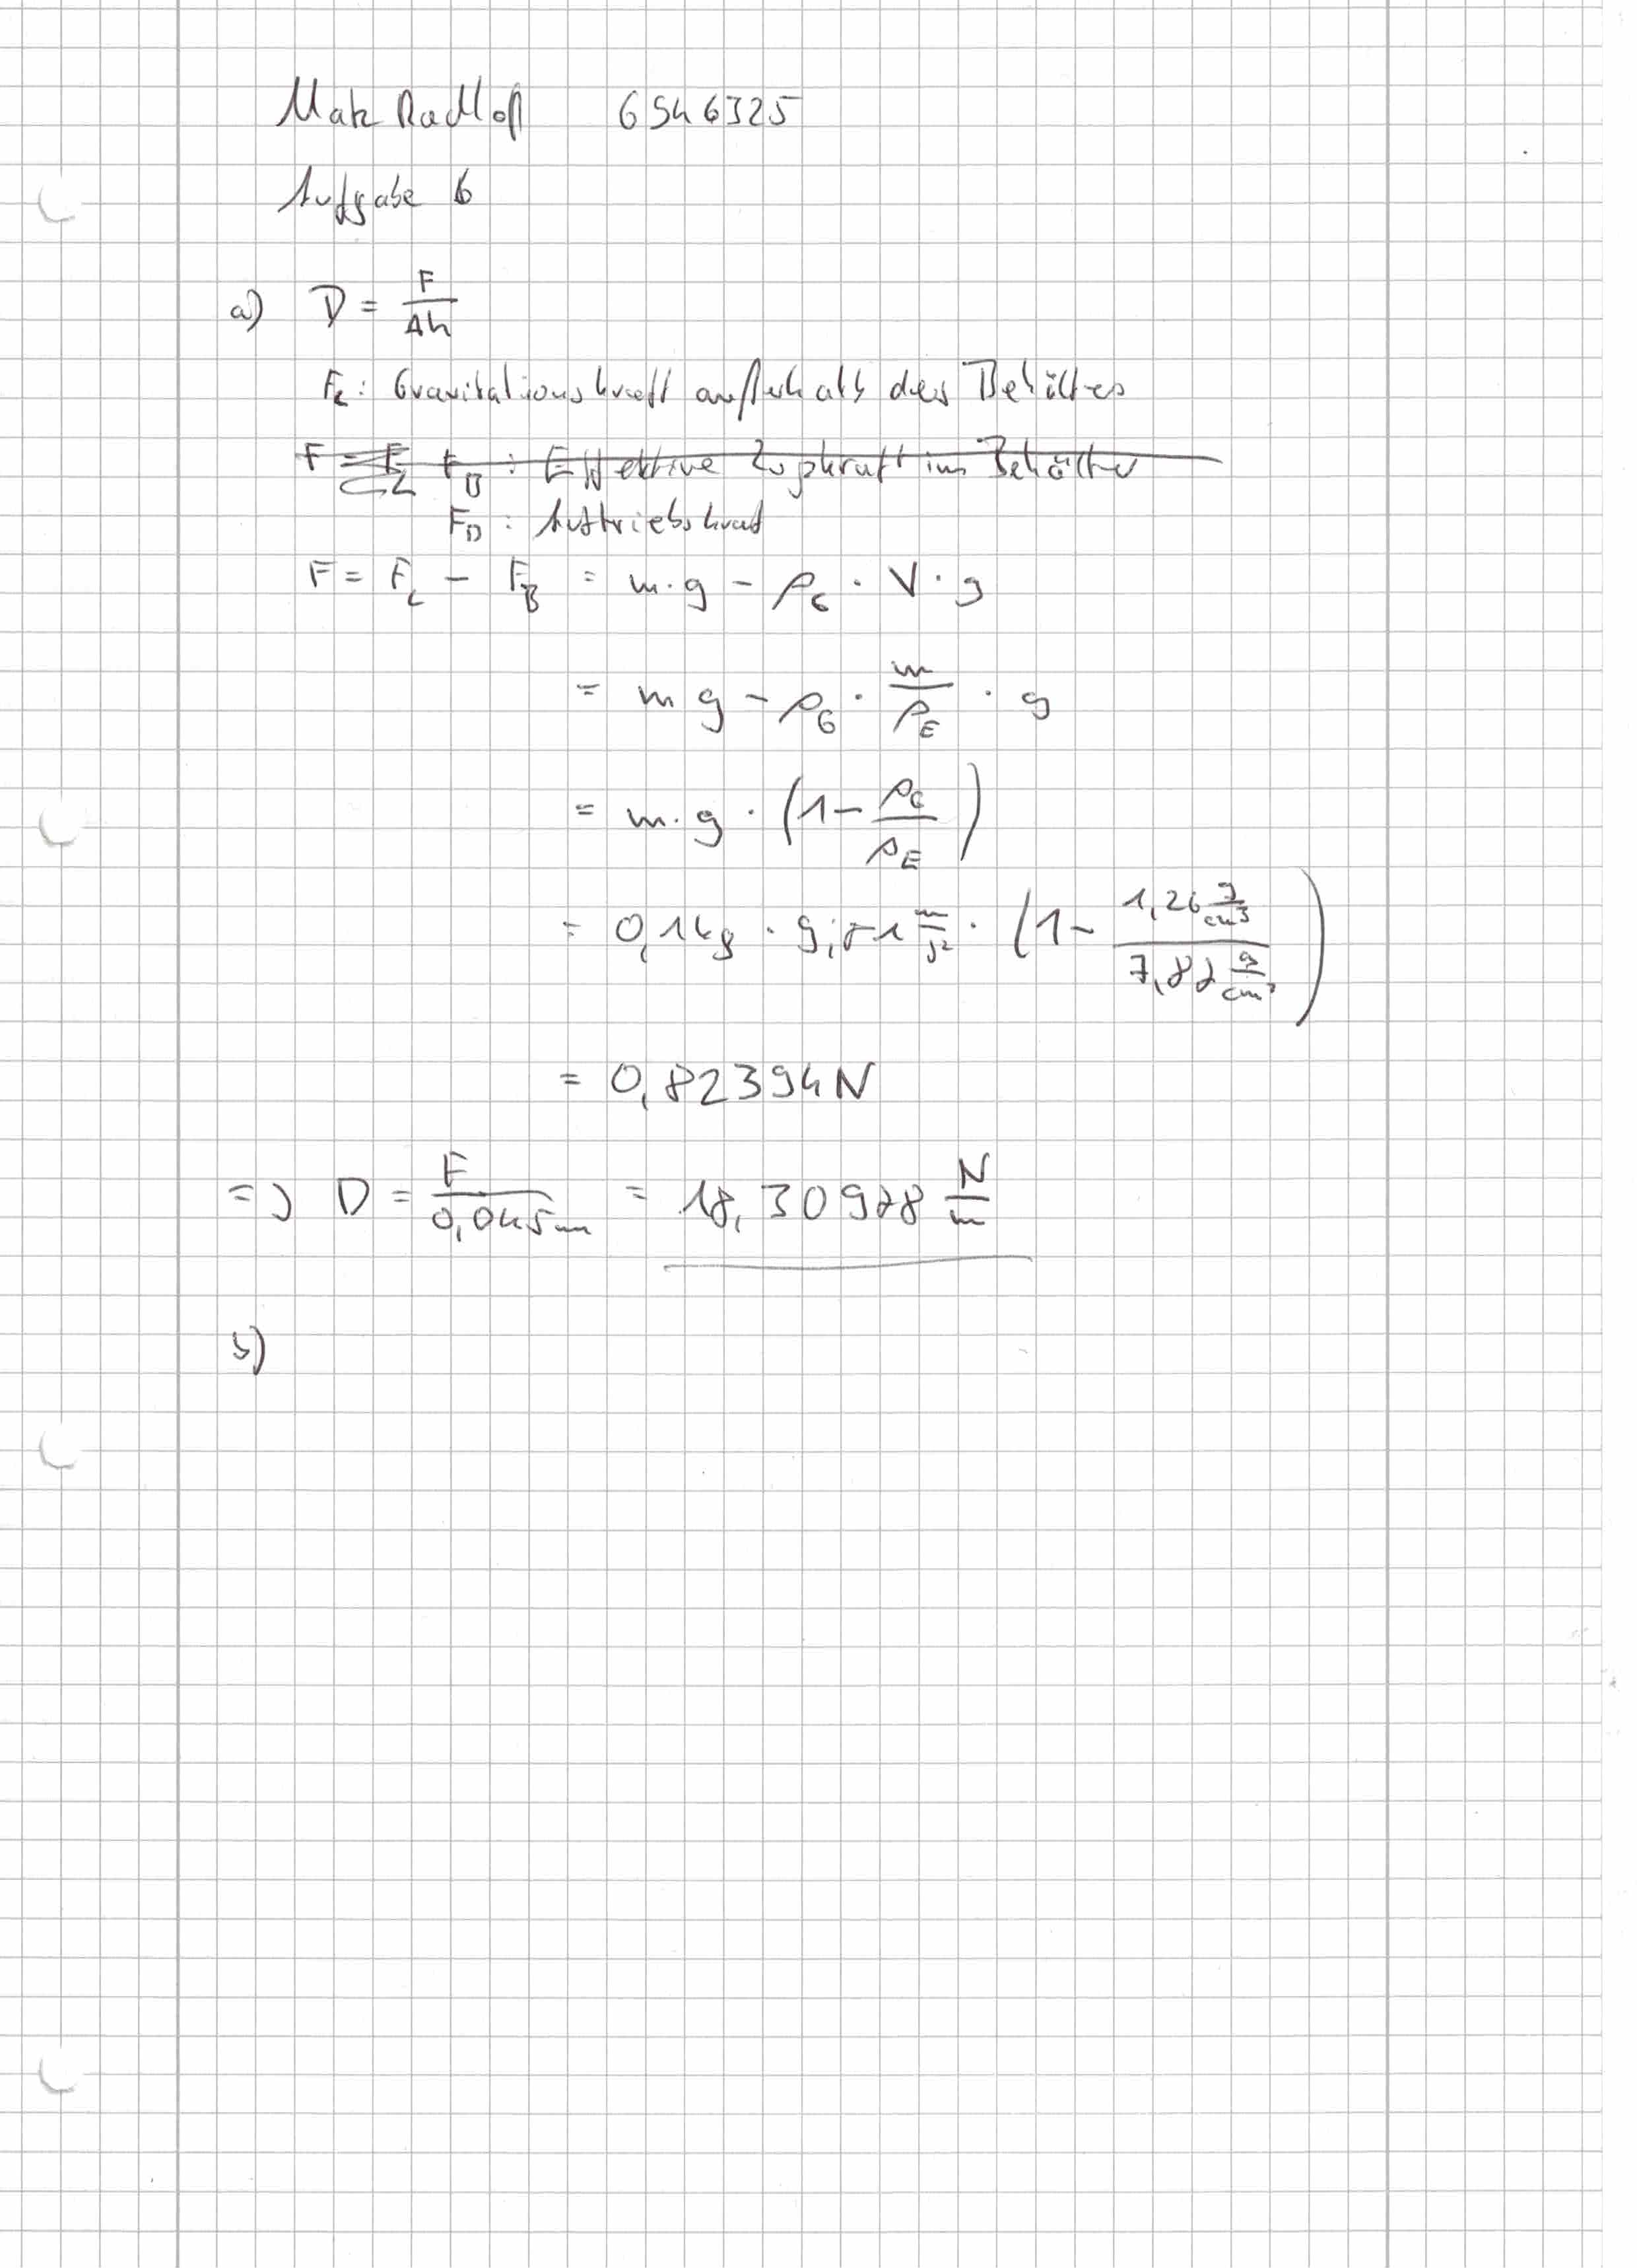 Matz Radloff 6546325
Aufgabe 6
a) D = F / Δh
F_L: Gravitationskraft außerhalb des Behälters
F = F_L F_B : Effektive Zugkraft im Behälter
F_B : Auftriebskraft
F = F_L - F_B = m·g - ρ_G · V · g
= m g - ρ_G · m / ρ_E · g
= m·g · (1 - ρ_G / ρ_E)
= 0,1kg · 9,81 m/s² · (1 - 1,26 g/cm³ / 7,87 g/cm³)
= 0,82394 N
=> D = F / 0,045m = 18,30978 N/m
b)